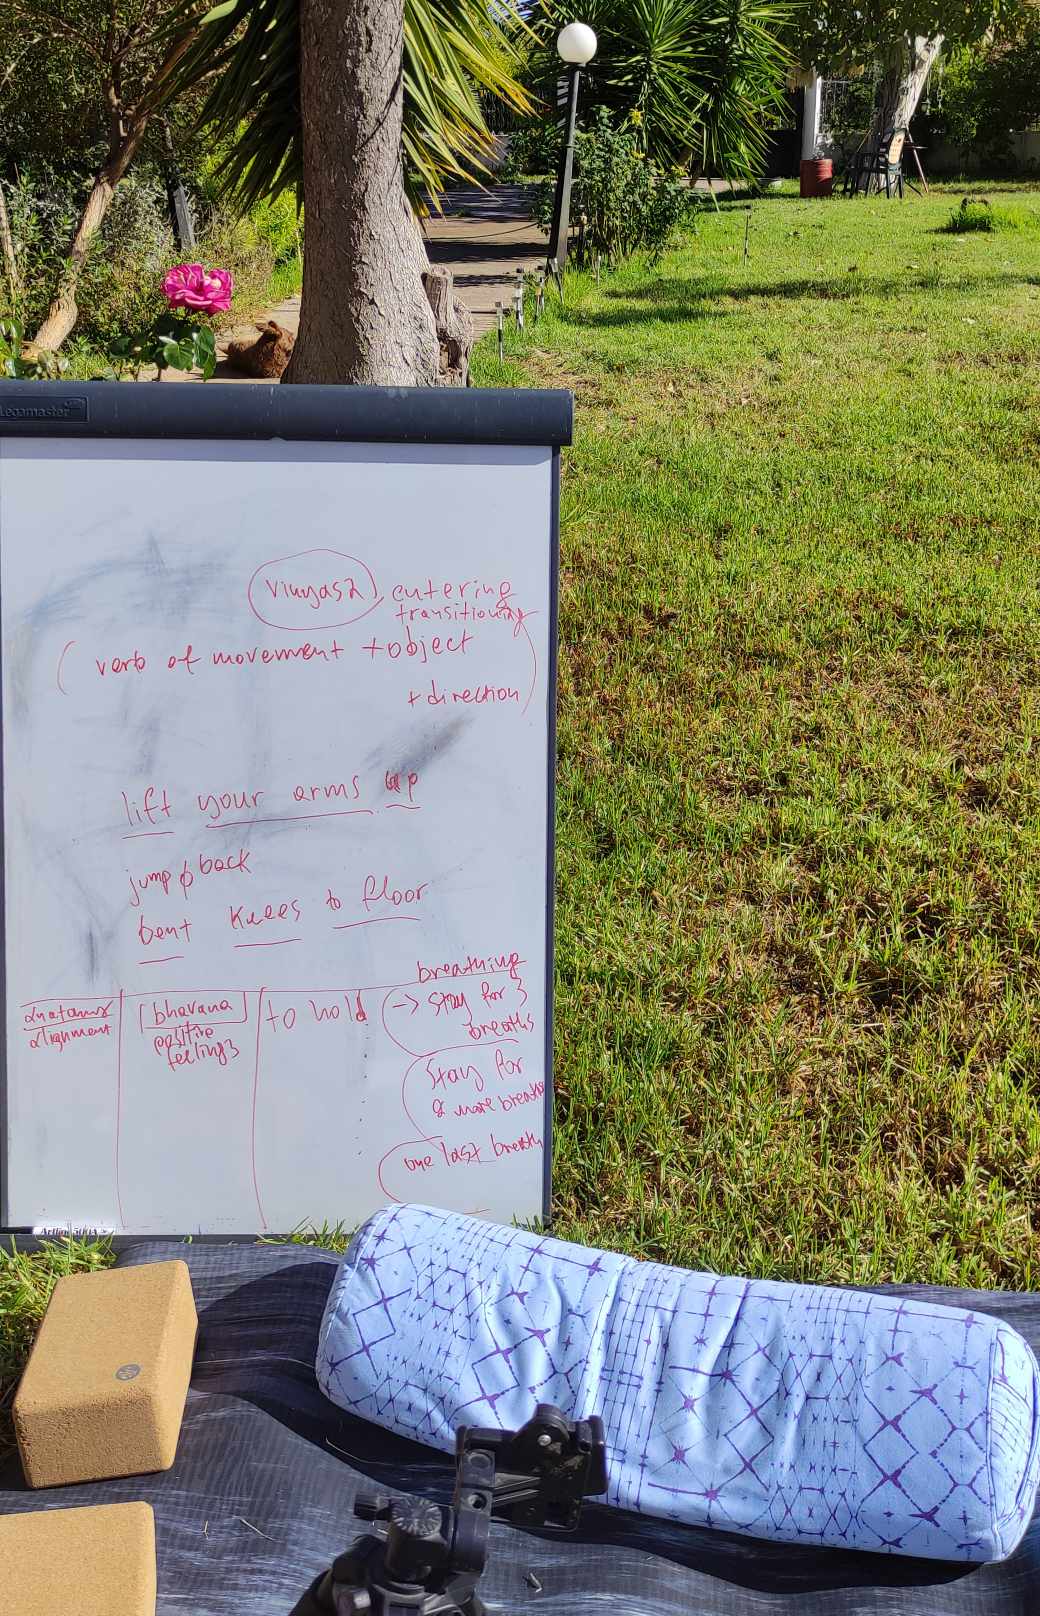 Legamaster
vinyasa, entering
transitioning
(verb of movement + object
+ direction)
lift your arms up
jump ϕ back
bent knees to floor
breathing
anatomy
alignment
bhavana
positive
feelings
to hold
→ stay for 3
breaths
stay for
2 more breaths
one last breath